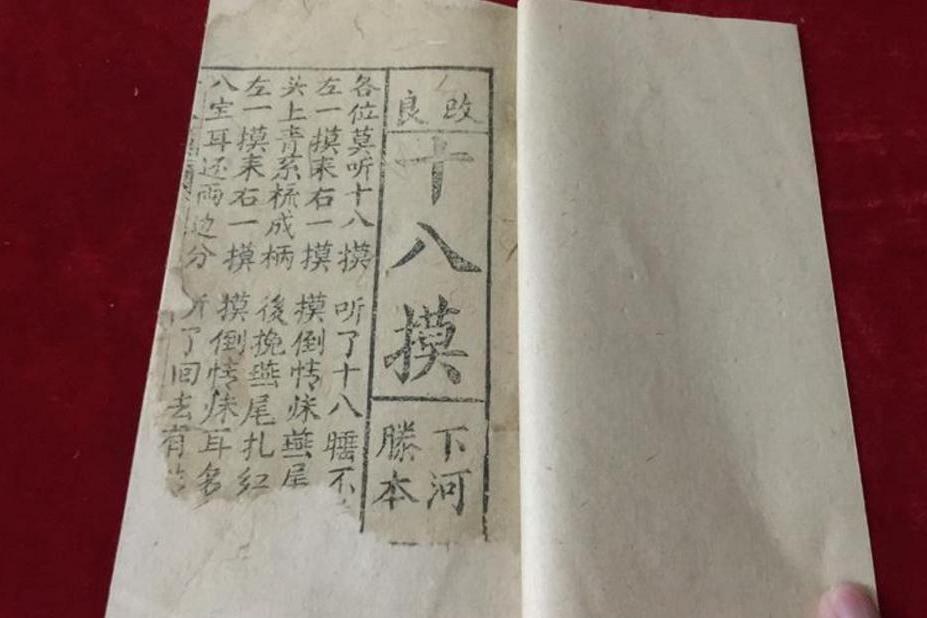 改良
十八摸
下河
滕本
各位莫听十八摸 听了十八睡不
左一摸来右一摸 摸倒情妹燕尾
头上青系梳成柄 後挽燕尾扎红
左一摸来右一摸 摸倒情妹耳名
八宝耳还两边分 听了回去有